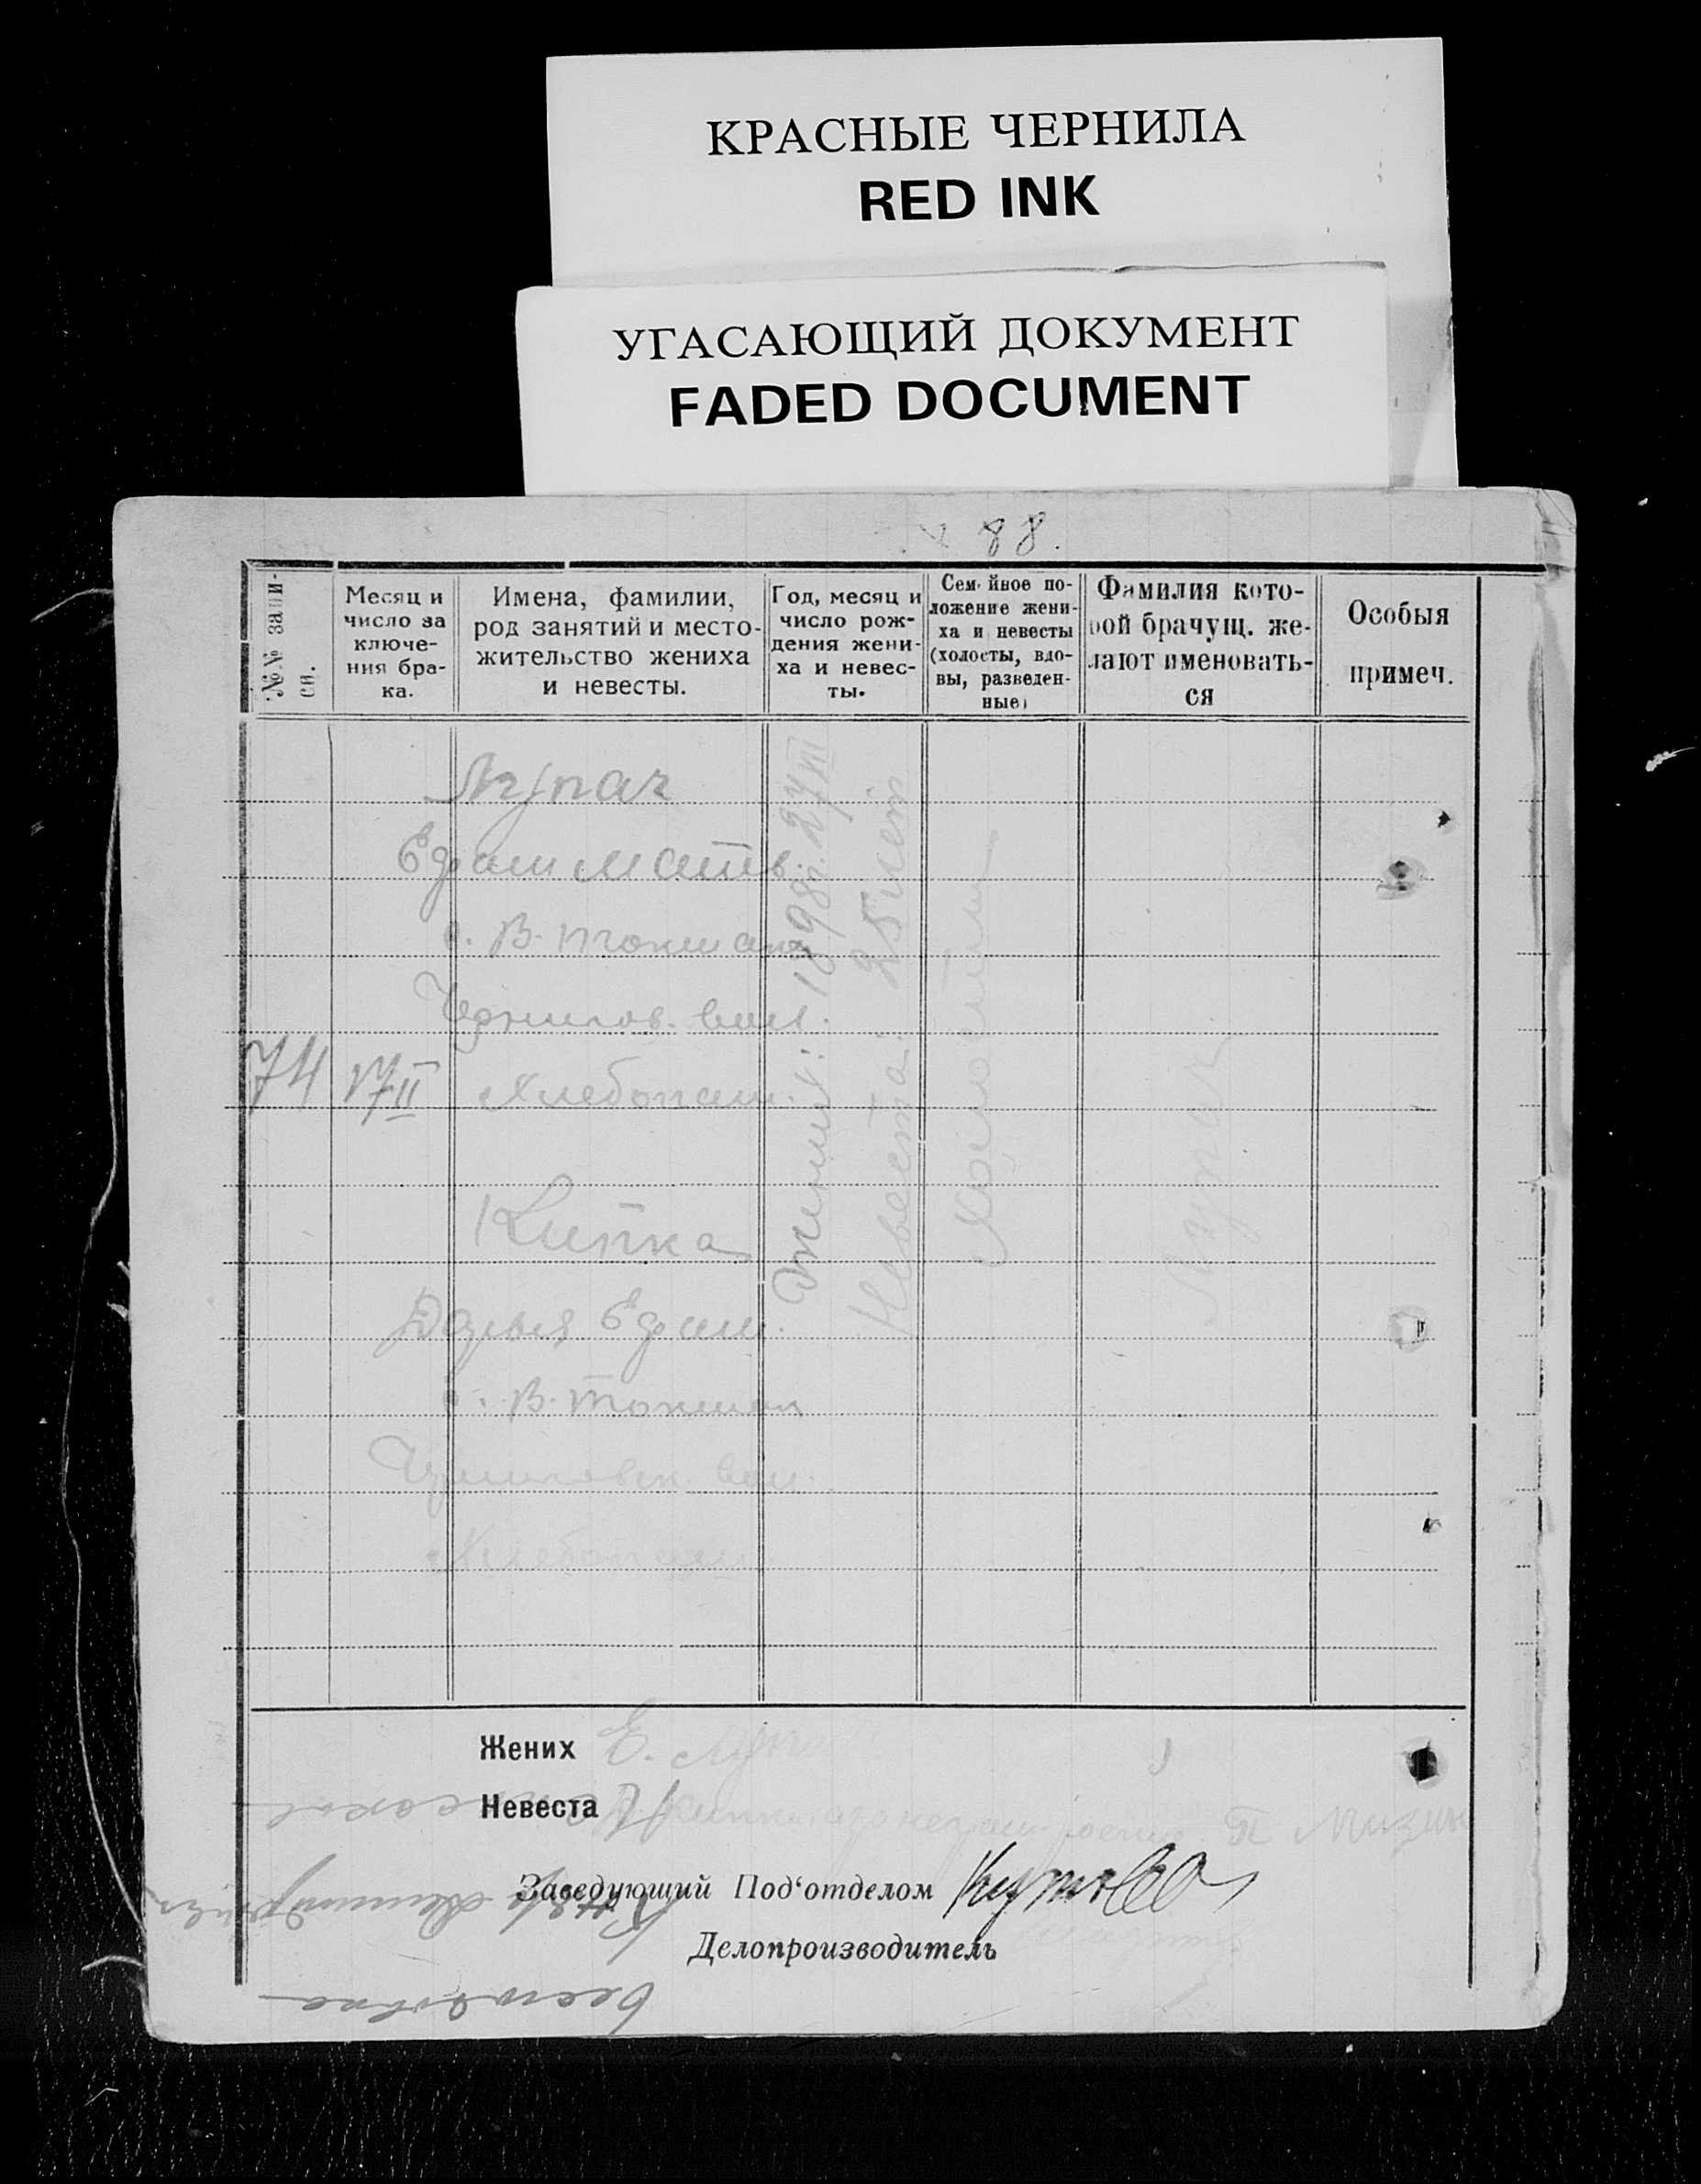 КРАСНЫЕ ЧЕРНИЛА
RED INK
УГАСАЮЩИЙ ДОКУМЕНТ
FADED DOCUMENT
88.
№№ запи-
си.
Месяц и
число за
ключе-
ния бра-
ка.
Имена, фамилии,
род занятий и место-
жительство жениха
и невесты.
Год, месяц и
число рож-
дения жени-
ха и невес-
ты.
Семейное по-
ложение жени-
ха и невесты
(холосты, вдо-
вы, разведен-
ные)
Фамилия кото-
рой брачущ. же-
лают именовать-
ся
Особыя
примеч.
74
17/II
Ефим Матв.
с. В. Токмак
Чернигов. вол.
Хлебопаш.
Кипка
Дарья Ефим.
с. В. Токмак
вол.
Хлебопаш.
Жених: 1898 г. 27/III
Невеста: 25 лет
Холостые
Жених Е.
Невеста
Заведующий Под'отделом
Делопроизводитель